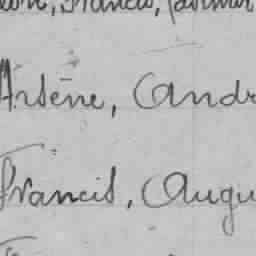 Francis,
Arsène, André
Francis, Augu